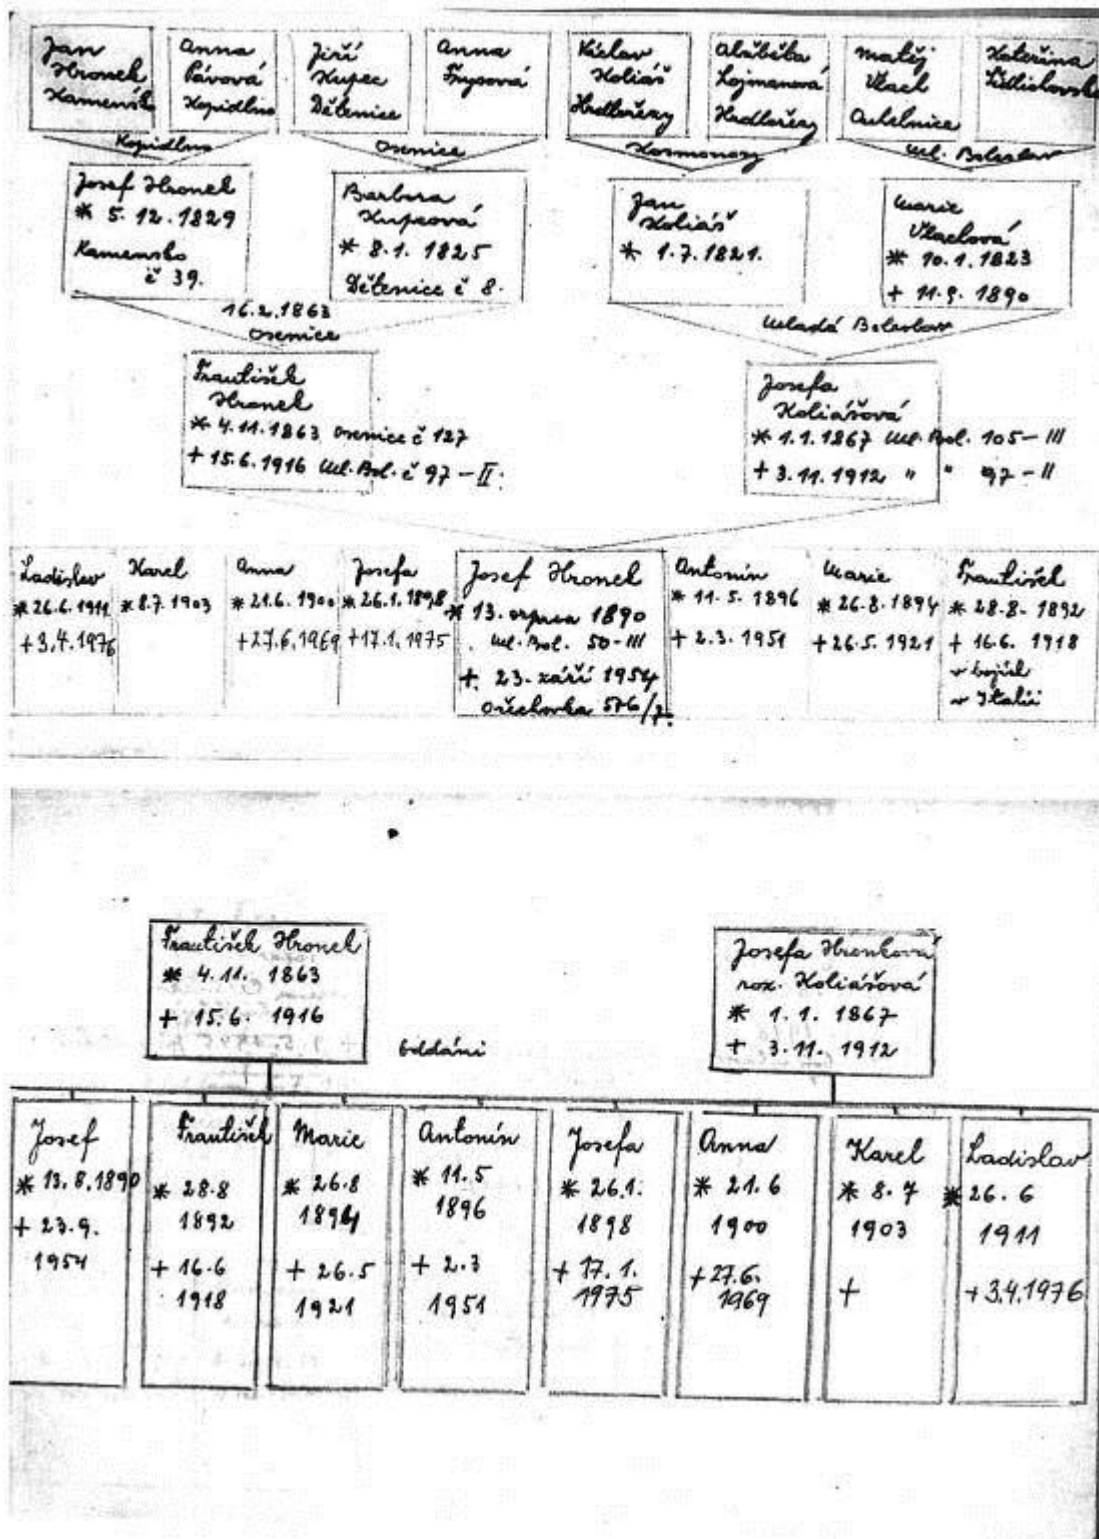 Jan
Hronek
Kamensko
Anna
Pávová
Kopidlno
Jiří
Kupec
Dětenice
Anna
Frysová
Václav
Koliáš
Hrdlořezy
Alžběta
Lojmanová
Hrdlořezy
Matěj
Vlach
Kateřina
Kopidlno
Osenice
Kosmonosy
Ml. Boleslav
Josef Hronek
* 5. 12. 1829
Kamensko
č 39.
Barbora
Kupcová
* 8. 1. 1825
Dětenice č 8.
Jan
Koliáš
* 1. 7. 1821.
Marie
Vlachová
* 10. 1. 1823
+ 11. 9. 1890
16. 2. 1863
Osenice
Mladá Boleslav
František
Hronek
* 4. 11. 1863 Osenice č 127
+ 15. 6. 1916 Ml. Bol. č 97 - II.
Josefa
Koliášová
* 1. 1. 1867 Ml. Bol. 105 - III
+ 3. 11. 1912 " " 97 - II
Ladislav
* 26. 6. 1911
+ 3. 4. 1976
Karel
* 8. 7. 1903
Anna
* 21. 6. 1900
+ 27. 6. 1969
Josefa
* 26. 1. 1898
+ 17. 1. 1975
Josef Hronek
* 13. srpna 1890
Ml. Bol. 50 - III
+ 23. září 1954
Ořechovka
Antonín
* 11. 5. 1896
+ 2. 3. 1951
Marie
* 26. 8. 1894
+ 26. 5. 1921
František
* 28. 8. 1892
+ 16. 6. 1918
v bojích
v Itálii
František Hronek
* 4. 11. 1863
+ 15. 6. 1916
oddáni
Josefa Hronková
roz. Koliášová
* 1. 1. 1867
+ 3. 11. 1912
Josef
* 13. 8. 1890
+ 23. 9.
1954
František
* 28. 8
1892
+ 16. 6
1918
Marie
* 26. 8
1894
+ 26. 5
1921
Antonín
* 11. 5
1896
+ 2. 3
1951
Josefa
* 26. 1.
1898
+ 17. 1.
1975
Anna
* 21. 6
1900
+ 27. 6.
1969
Karel
* 8. 7
1903
+
Ladislav
* 26. 6
1911
+ 3. 4. 1976